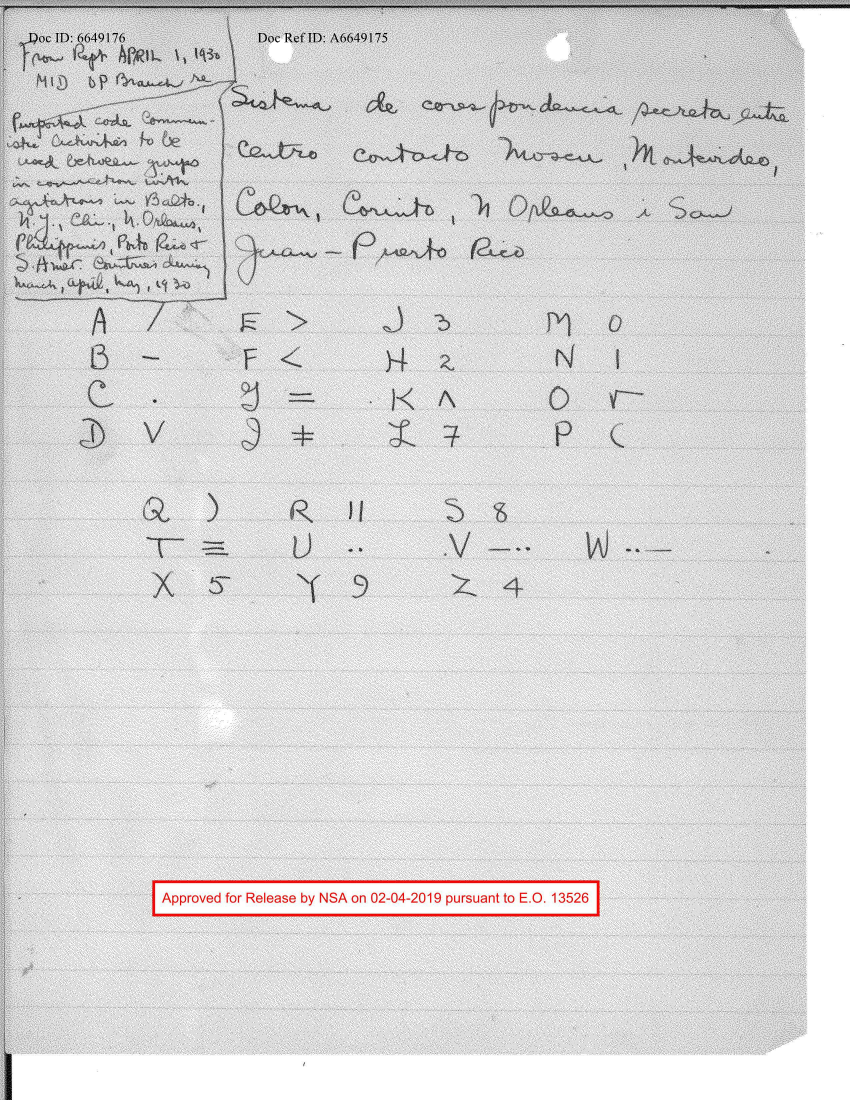 Doc ID: 6649176
Doc Ref ID: A6649175
From Rept APRIL 1, 1930
MID OP Branch re
Purported code Commun-
istic Activities to be
used between groups
in connection with
agitations in Balto.,
N.Y., Chi., N. Orleans,
Philippines, Porto Rico &
S. Amer. Countries during
March, april, may, 1930
Sistema de corespondencia secreta entre
Centro contacto Moscu, Montevideo,
Colon, Corinto, N Orleans i San
Juan - Puerto Rico
A / E > J 3 M 0
B — F < H 2 N 1
C . G = K ʌ O r
D V I ‡ L 7 P (
Q ) R 11 S 8
T ≡ U .. V —.. W ..—
X 5 Y 9 Z 4
Approved for Release by NSA on 02-04-2019 pursuant to E.O. 13526